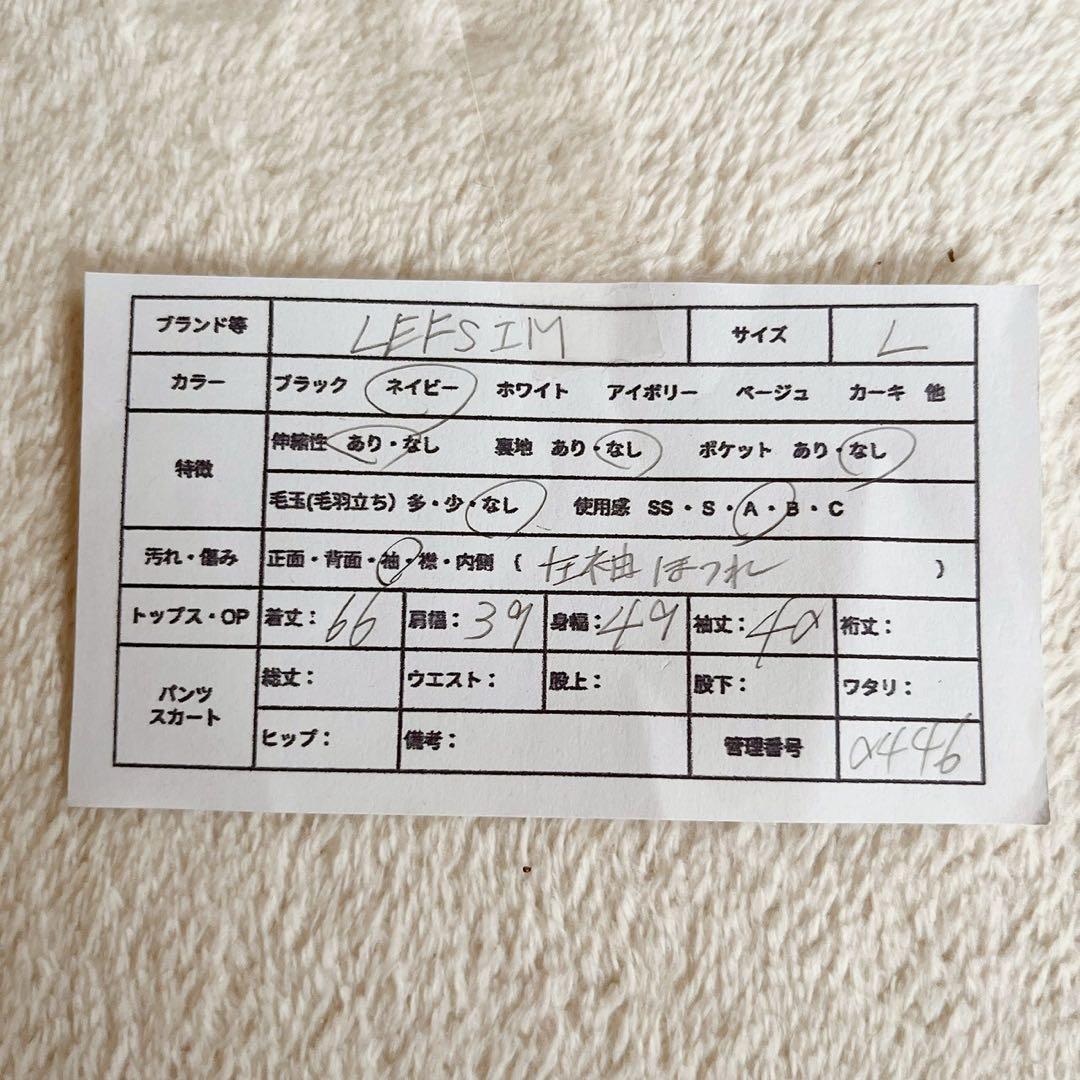 ブランド等 LEFSIM サイズ L
カラー ブラック ネイビー ホワイト アイボリー ベージュ カーキ 他
特徴 伸縮性 あり・なし 裏地 あり・なし ポケット あり・なし
毛玉(毛羽立ち) 多・少・なし 使用感 SS・S・A・B・C
汚れ・傷み 正面・背面・袖・襟・内側 ( 左袖ほつれ )
トップス・OP 着丈: 66 肩幅: 39 身幅: 49 袖丈: 40 裄丈:
パンツ スカート 総丈: ウエスト: 股上: 股下: ワタリ:
ヒップ: 備考: 管理番号 0446